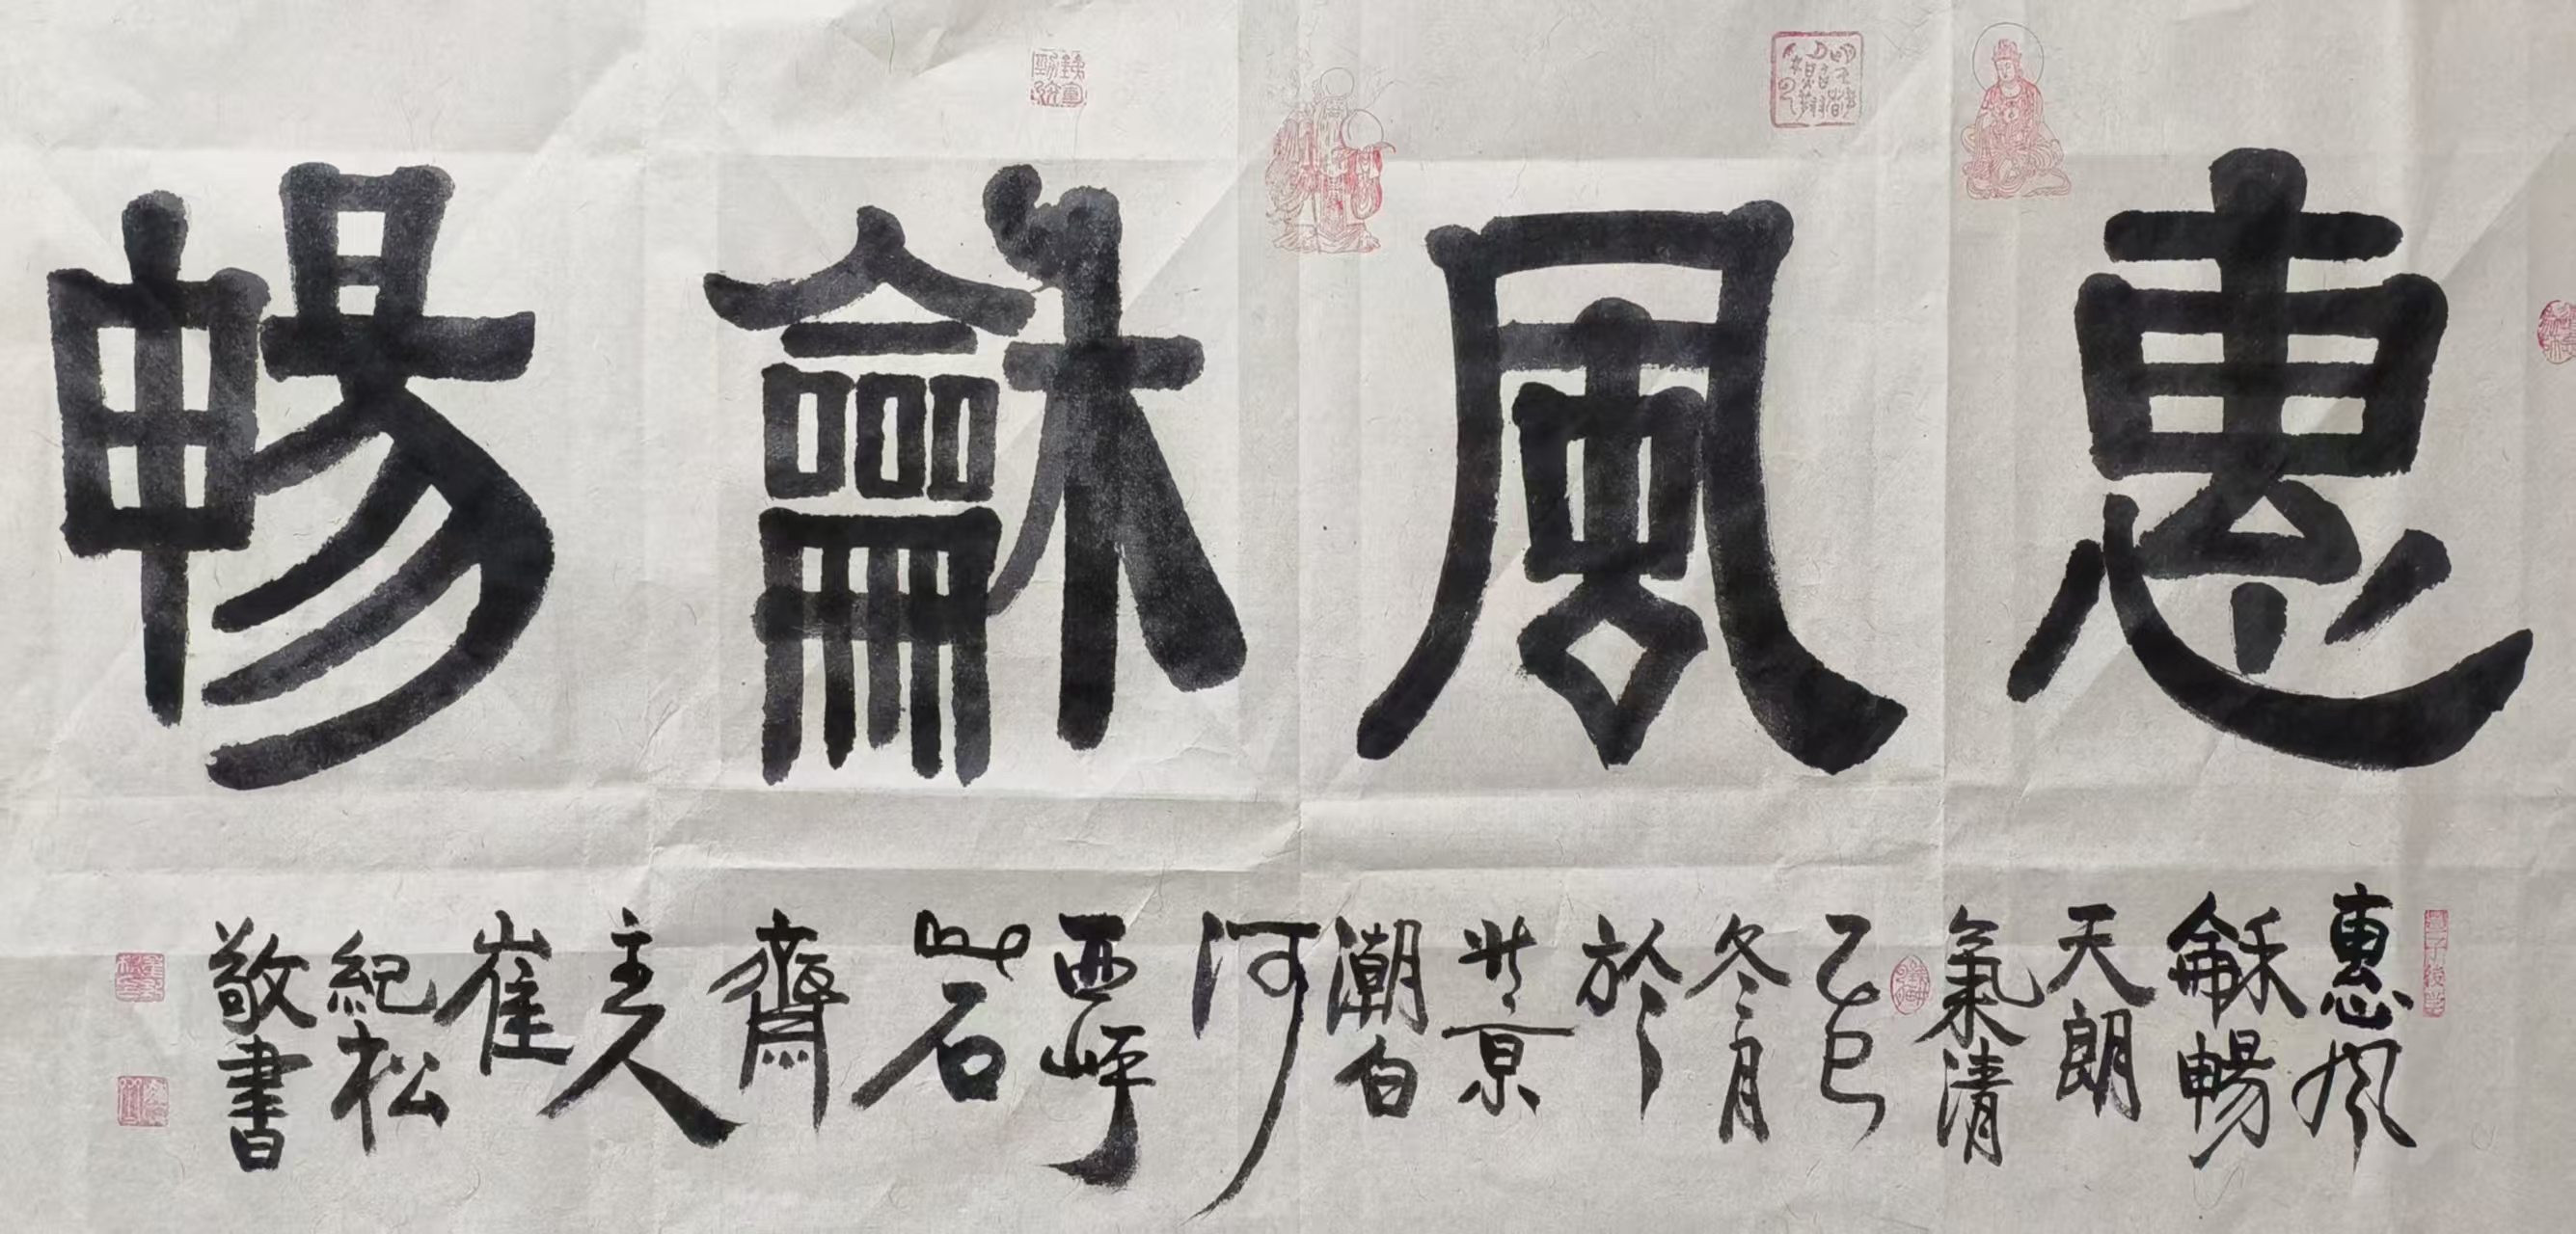 惠風龢暢
惠風
龢暢
天朗
氣清
乙巳
冬月
於
北京
潮白
河
西岸
石
齋
主人
崔
紀松
敬書